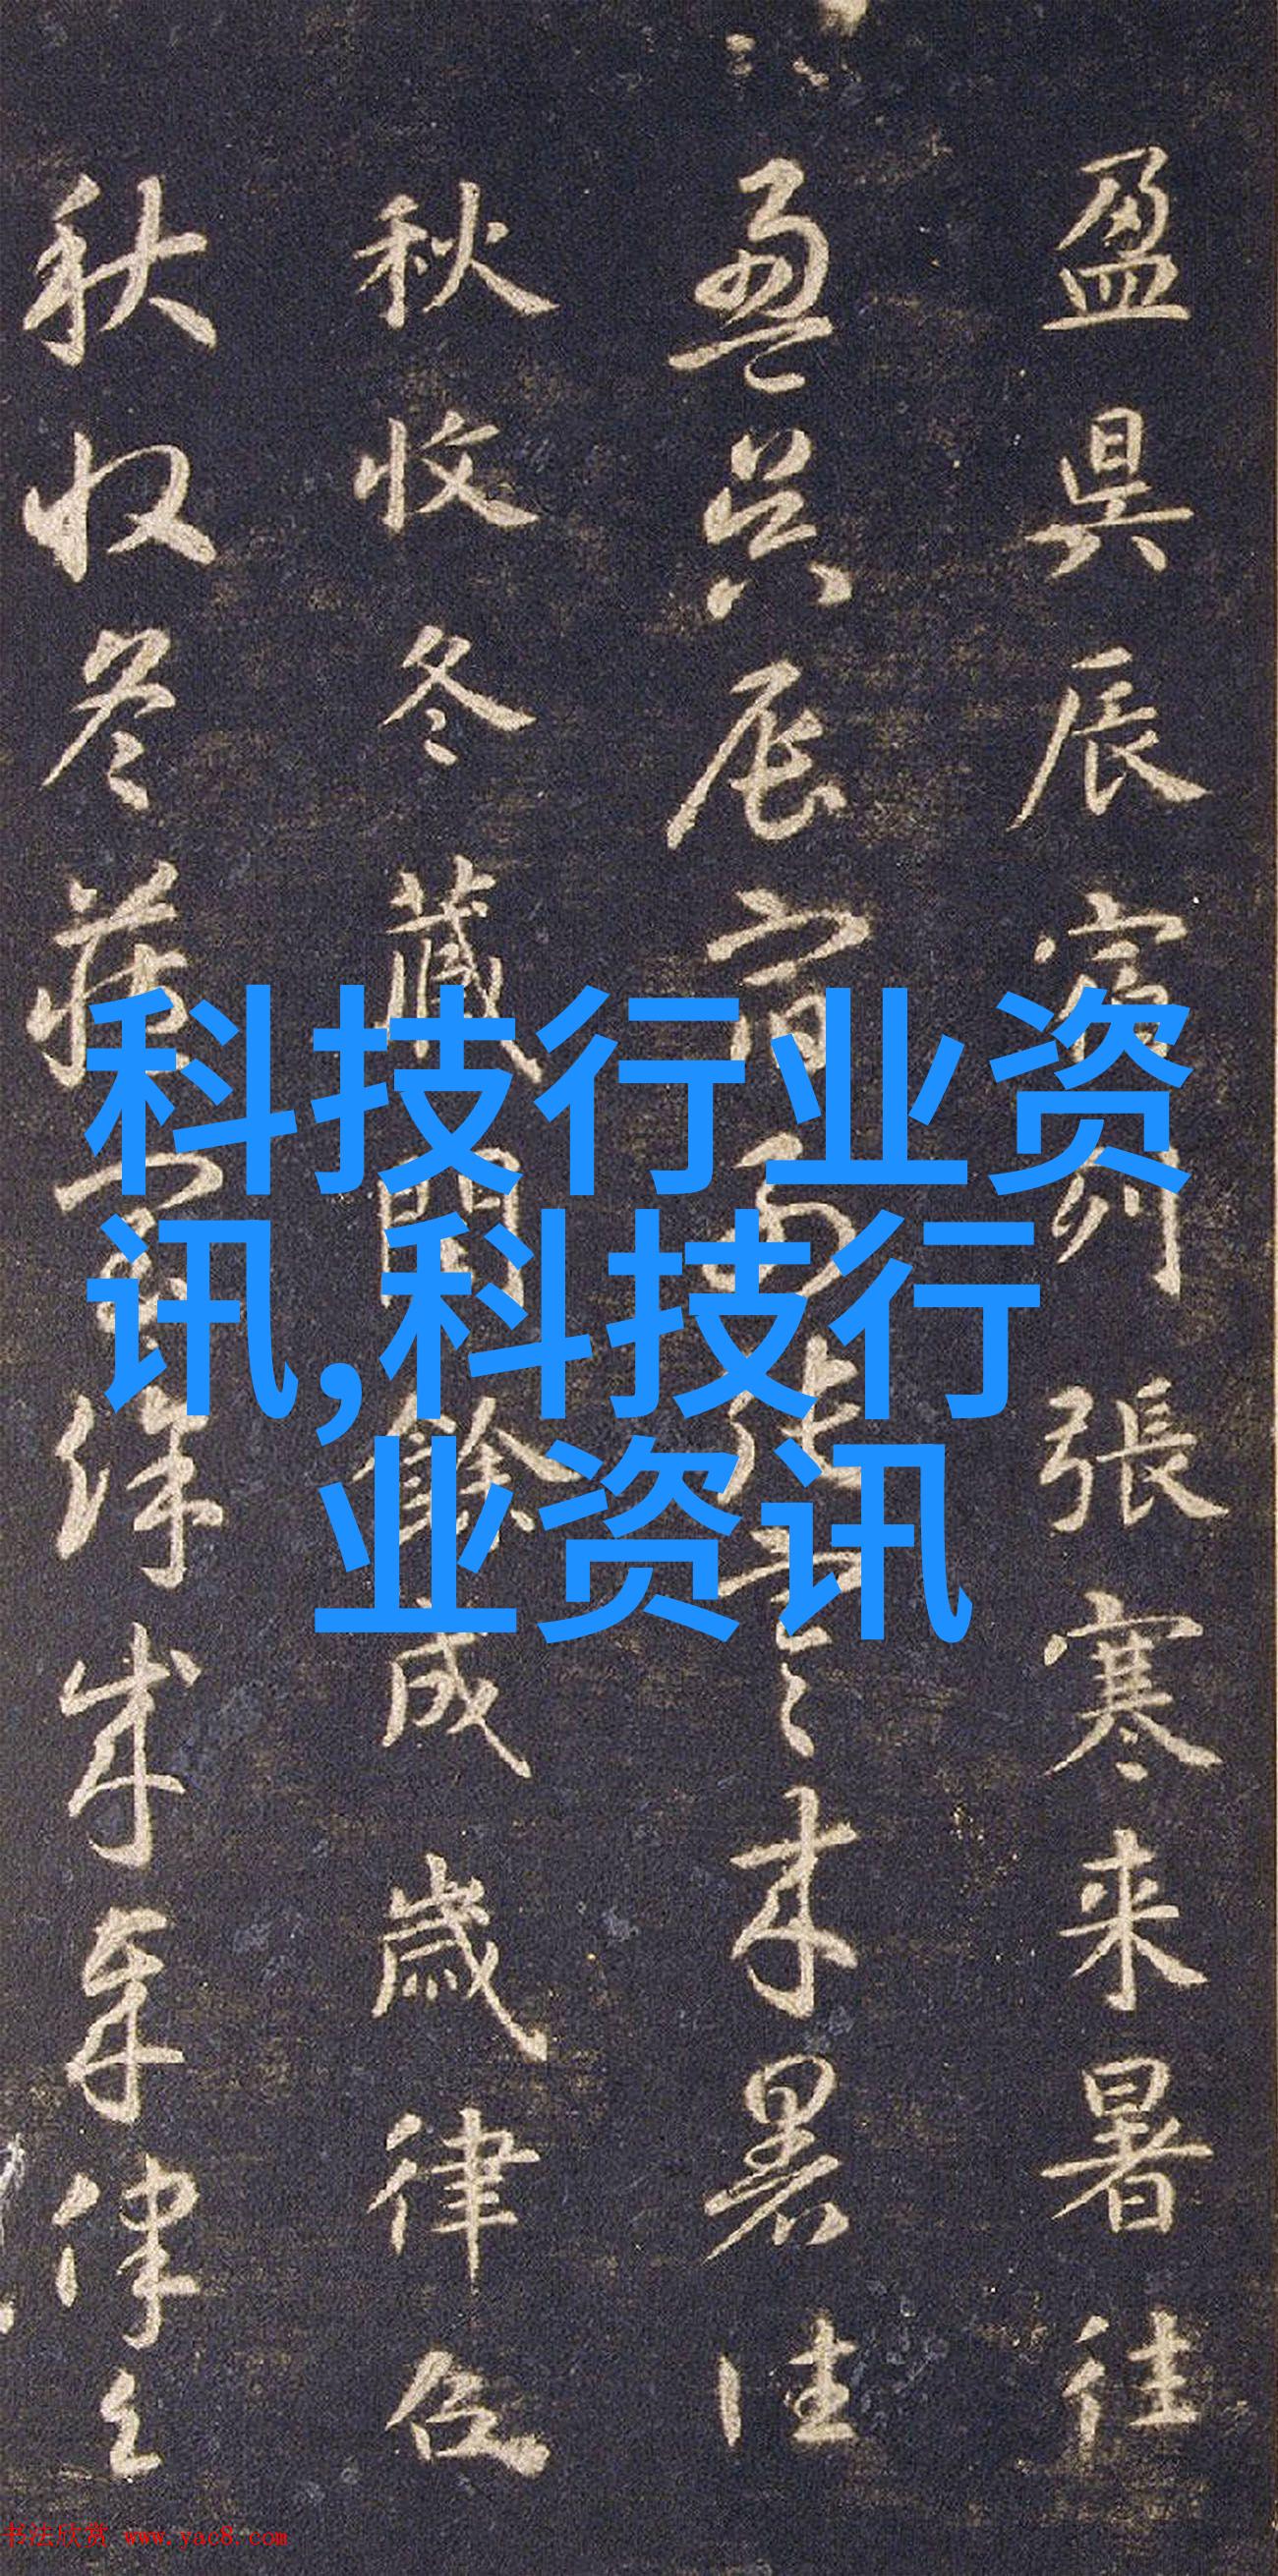 盈昃辰宿列張寒来暑往
盈昃辰宿列張寒来暑往
秋收冬藏閏餘成歲律召
秋收冬藏閏餘成歲律召
科技行业资
讯,科技行
业资讯
书法欣赏 www.yac8.com